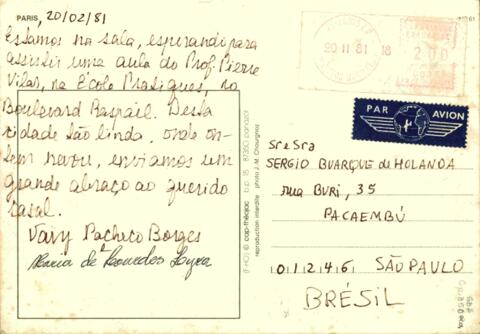 PARIS, 20/02/81
Estamos na sala, esperando para
assistir uma aula do Prof. Pierre
Vilar, na École Pratiques, no
Boulevard Raspail. Desta
cidade são linda, onde on-
tem nevou, enviamos um
grande abraço ao querido
casal.
Vavy Pacheco Borges
Maria de Lourdes Lyra
(F-HO) © cap-théojac b.p. 18 87350 panazol
reproduction interdite photo J.M.
20 II 81 18
200
PAR AVION
Sr e Sra
SERGIO BUARQUE de HOLANDA
rua BURI, 35
PACAEMBÚ
01246 SÃO PAULO
BRÉSIL